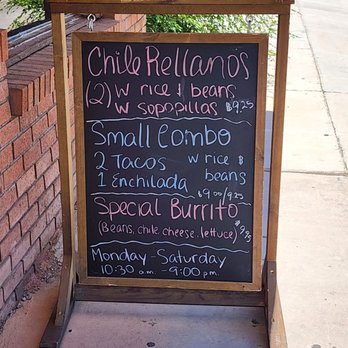 Chile Rellanos
(2) w rice & beans
w sopapillas $9.25
Small Combo
2 Tacos w rice &
1 Enchilada beans
$9.00/9.25
Special Burrito
(Beans, chile, cheese, lettuce)
Monday - Saturday
10:30 a.m. - 9:00 p.m.